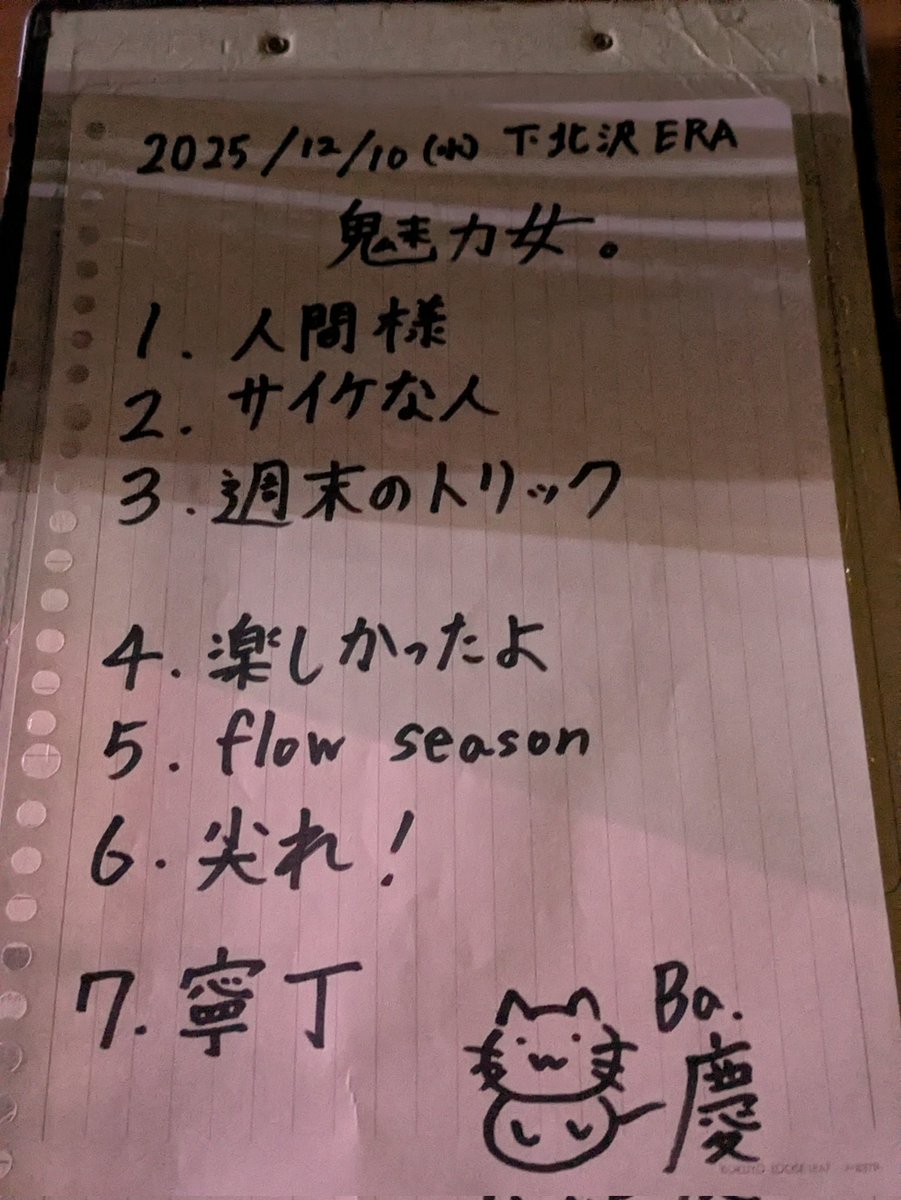 2025/12/10(水) 下北沢ERA
魅力女。
1. 人間様
2. サイケな人
3. 週末のトリック
4. 楽しかったよ
5. flow season
6. 尖れ!
7. 寧丁
Ba.
慶